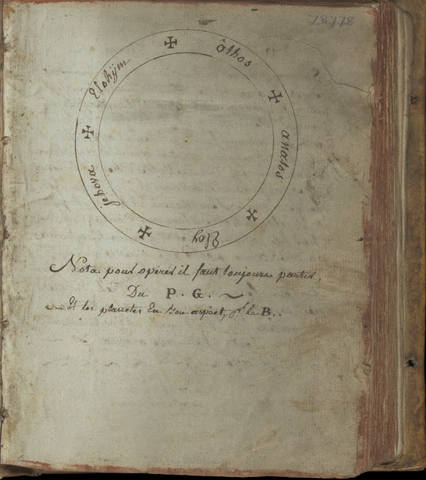 ✠ Ôthos ✠ anatos ✠ Eloy ✠ Jehova ✠ Elohijm
Nota pour operer il faut toujours partir,
Du P. G. ~
Et les planetes En Bon aspect, pr la B..